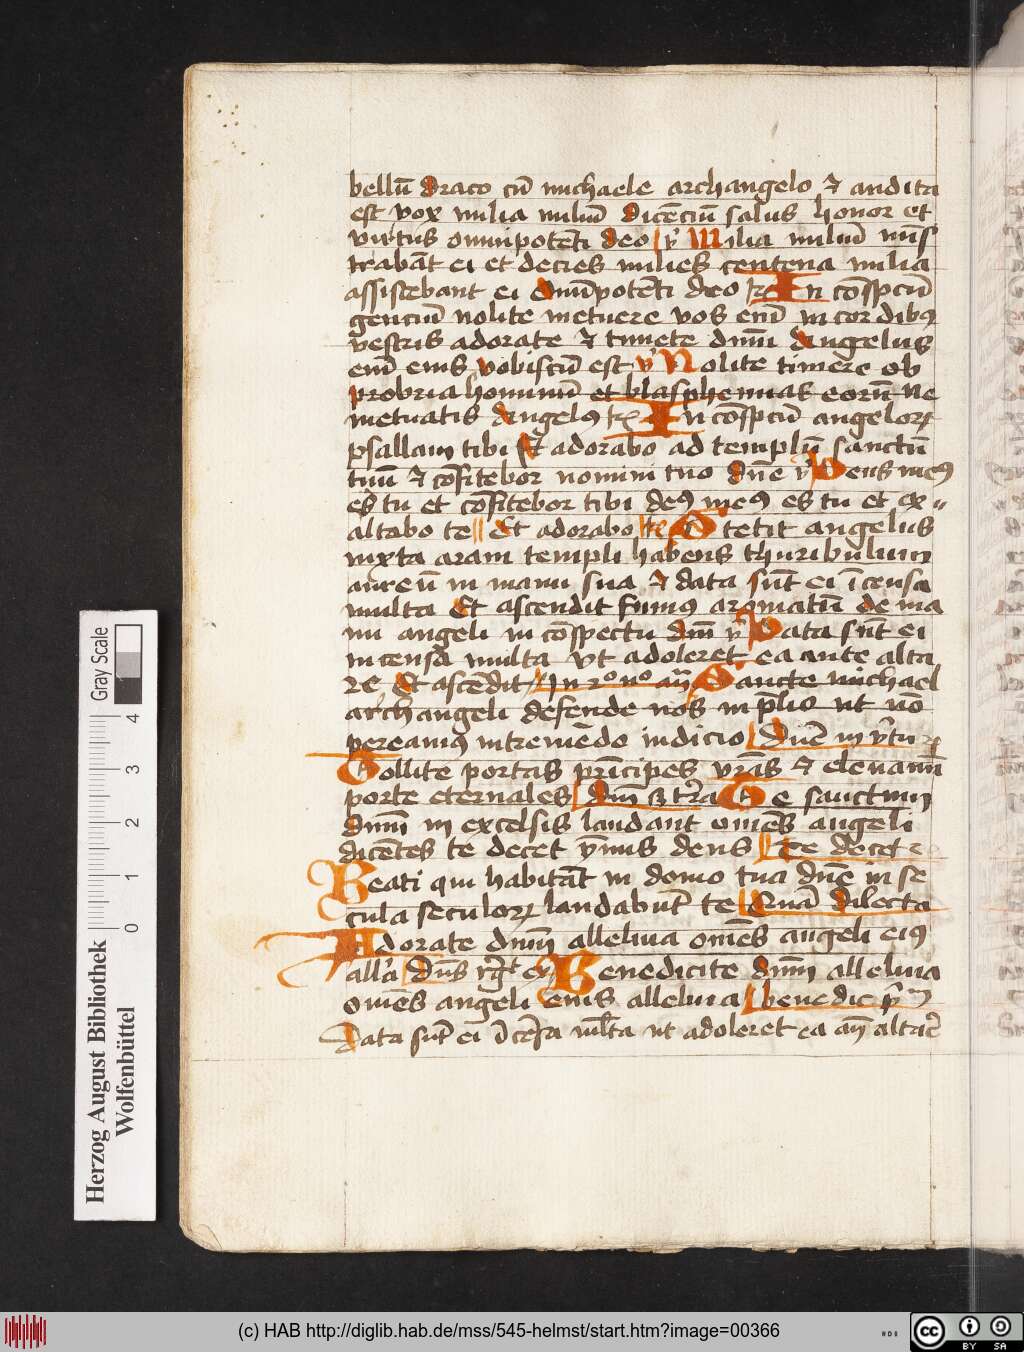 bellū draco cū michaele archangelo ⁊ audita
est vox milia miliū dicēciū salus honor et
virtus omnipotēti deo ℣ Milia miliū mīs
trabāt ei et decies milies centena milia
assistebant ei omīpotēti deo ℞ In cōspcū
genciū nolite metuere vos enī in cordibꝰ
vestris adorate ⁊ timete dnm̄ Angelus
enī eius vobiscū est ℣ Nolite timere ob
probria hominū et blasphemias eorū ne
metuatis Angelꝰ ℞ In cōspcū angeloꝝ
psallam tibi Et adorabo ad templū sanctū
tuū ⁊ cōfitebor nomini tuo dn̄e ℣ Deus meꝰ
es tu et cōfitebor tibi deꝰ meꝰ es tu et ex〃
altabo te Et adorabo ℞ Stetit angelus
iuxta aram templi habens thuribulum
aureū in manu sua ⁊ data sūt ei īcensa
multa Et ascendit fumꝰ aromatū de ma
nu angeli in cōspectu dnī ℣ Data sūt ei
incensa multa vt adoleret ea ante alta
re Et ascēdit In 2º nº an̄ Sancte michael
archangeli defende nos in p̄lio ut nō
pereamꝰ in tremēdo iudicio Dn̄e in v̄tu
Tollite portas prīcipes vr̄as ⁊ eleuamī
porte eternales Dnī ē tr̄a Te sanctum
dnm̄ in excelsis laudant om̄es angeli
dicētes te decet ymnis deus Te decet
Beati qui habitāt in domo tua dn̄e in se
cula seculoꝝ laudabūt te Quā dilecta
Adorate dnm̄ alleluia om̄es angeli eiꝰ
all'a Dn̄s rḡt ex Benedicite dnm̄ alleluia
om̄es angeli eius alleluia benedic p̄
Data sūt ei īcēsa mlta ut adoleret ea an̄ altar̄
Herzog August Bibliothek
Wolfenbüttel
0 1 2 3 4
Gray Scale
(c) HAB http://diglib.hab.de/mss/545-helmst/start.htm?image=00366
cc BY SA